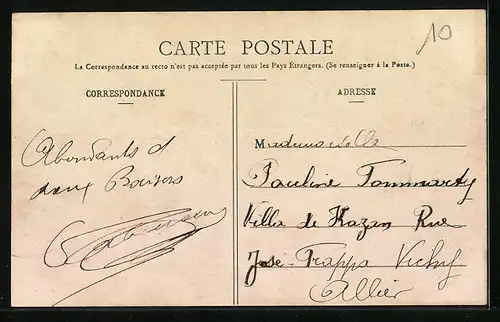 10
CARTE POSTALE
La Correspondance au recto n'est pas acceptée par tous les Pays Étrangers. (Se renseigner à la Poste.)
CORRESPONDANCE
ADRESSE
Abondants d
doux Baisers
Mademoiselle
Pauline
Villa de Kazan Rue
José-Frappa Vichy
Allier